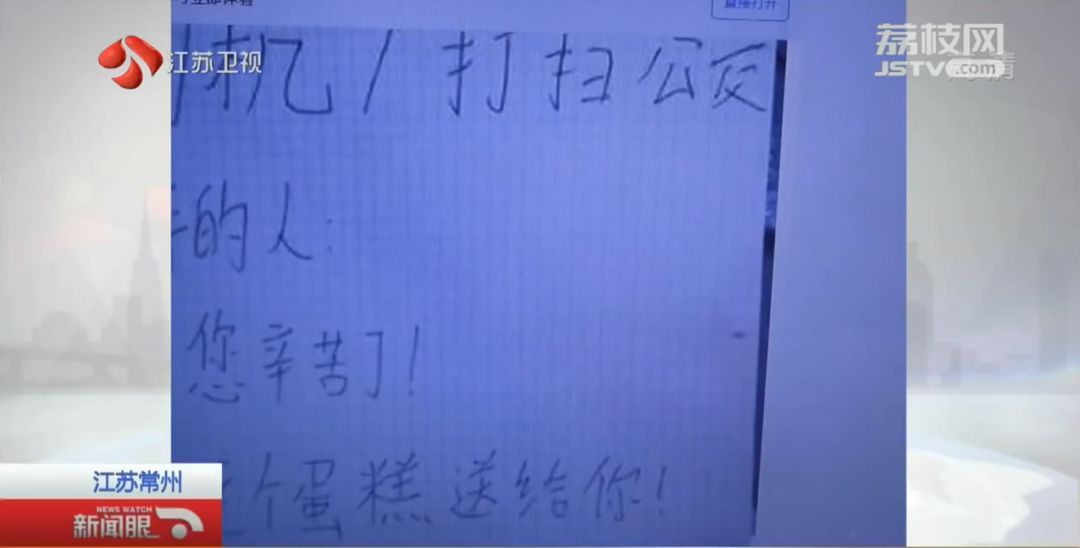 直接打开
江苏卫视
荔枝网
JSTV.com
机/打扫公交
的人:
您辛苦了!
个蛋糕送给你!
江苏常州
NEWS WATCH
新闻眼